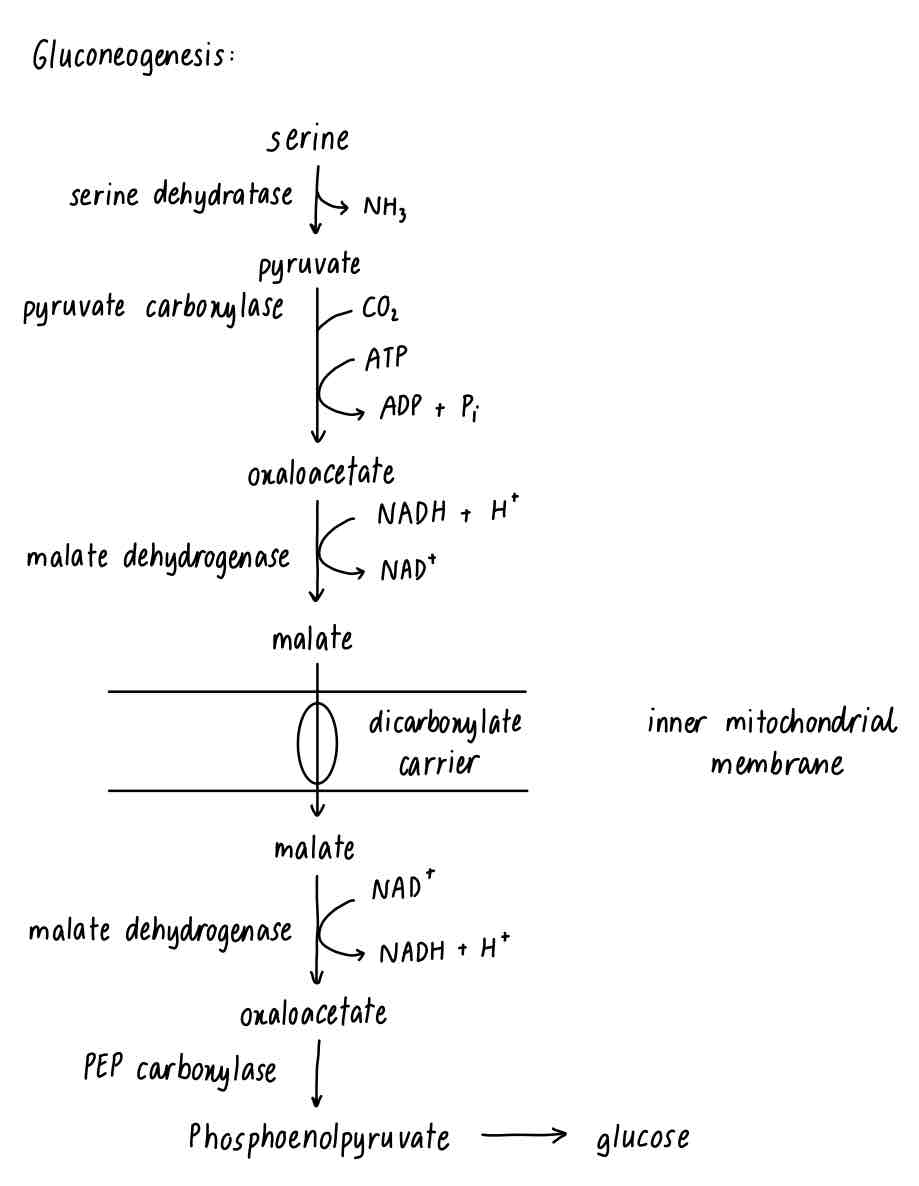 Gluconeogenesis:
serine
serine dehydratase
NH₃
pyruvate
pyruvate carboxylase
CO₂
ATP
ADP + Pᵢ
oxaloacetate
NADH + H⁺
malate dehydrogenase
NAD⁺
malate
dicarboxylate
carrier
inner mitochondrial
membrane
malate
NAD⁺
malate dehydrogenase
NADH + H⁺
oxaloacetate
PEP carboxylase
Phosphoenolpyruvate
glucose